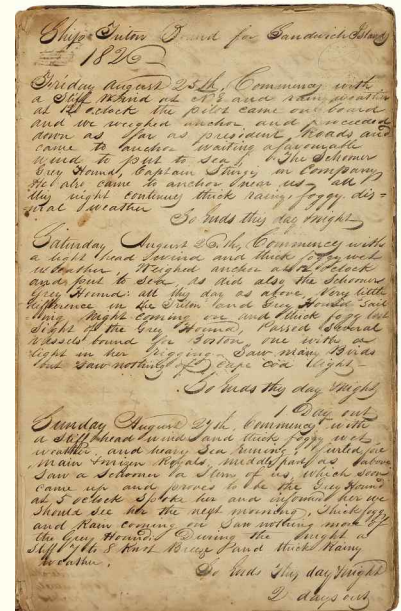 Ship Triton Bound for Sandwich Islands
1826
Friday August 25th, Commences with
a Stiff Wind at N E and rainy weather
at 12 oclock the pilot came on board
and we weighed anchor and proceeded
down as far as president Roads and
came to anchor waiting a favourable
wind to put to sea. The Schooner
Grey Hound, Captain Sturgis in Company
He also came to anchor near us all
this night continues thick rainy foggy dis-
mal weather
So Ends this day & night
Saturday August 26th, Commences with
a light head wind and thick foggy wet
weather. Weighed anchor at oclock
and put to Sea, as did also the Schooner
Grey Hound: all this day as above, Very little
difference in the Triton and Grey Hound Sail
ing Night coming on and thick fogg lost
Sight of the Grey Hound, Passed Several
Vassels bound for Boston, one with a
light in her Rigging. Saw many Birds
but Saw nothing of Cape Cod Light
So Ends this day & night
1 Day out
Sunday August 27th, Commences with
a Stiff head wind and thick foggy wet
weather, and heavy Sea running,
main Royals, middle part as above
Saw a Schooner to Stern of us, which soon
came up and proves to be the Grey Hound
at 5 oclock Spoke her and informd her we
should see her the next morning, Thick fogg
and Rain coming on Saw nothing more of
the Grey Hound. During the night a
Stiff 7 to 8 Knot Breeze and thick Rainy
weather.
So Ends this day & night
2 days out